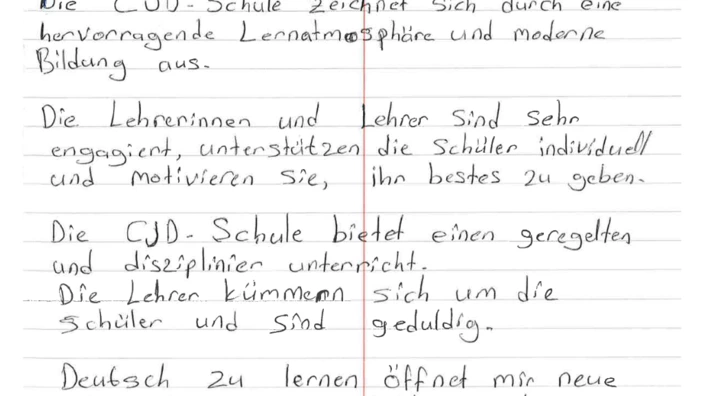 Die CJD-Schule zeichnet sich durch eine
hervorragende Lernatmosphäre und moderne
Bildung aus.
Die Lehrerinnen und Lehrer sind sehr
engagiert, unterstützen die Schüler individuell
und motivieren sie, ihr bestes zu geben.
Die CJD-Schule bietet einen geregelten
und disziplinier unterricht.
Die Lehrer kümmern sich um die
schüler und sind geduldig.
Deutsch zu lernen öffnet mir neue